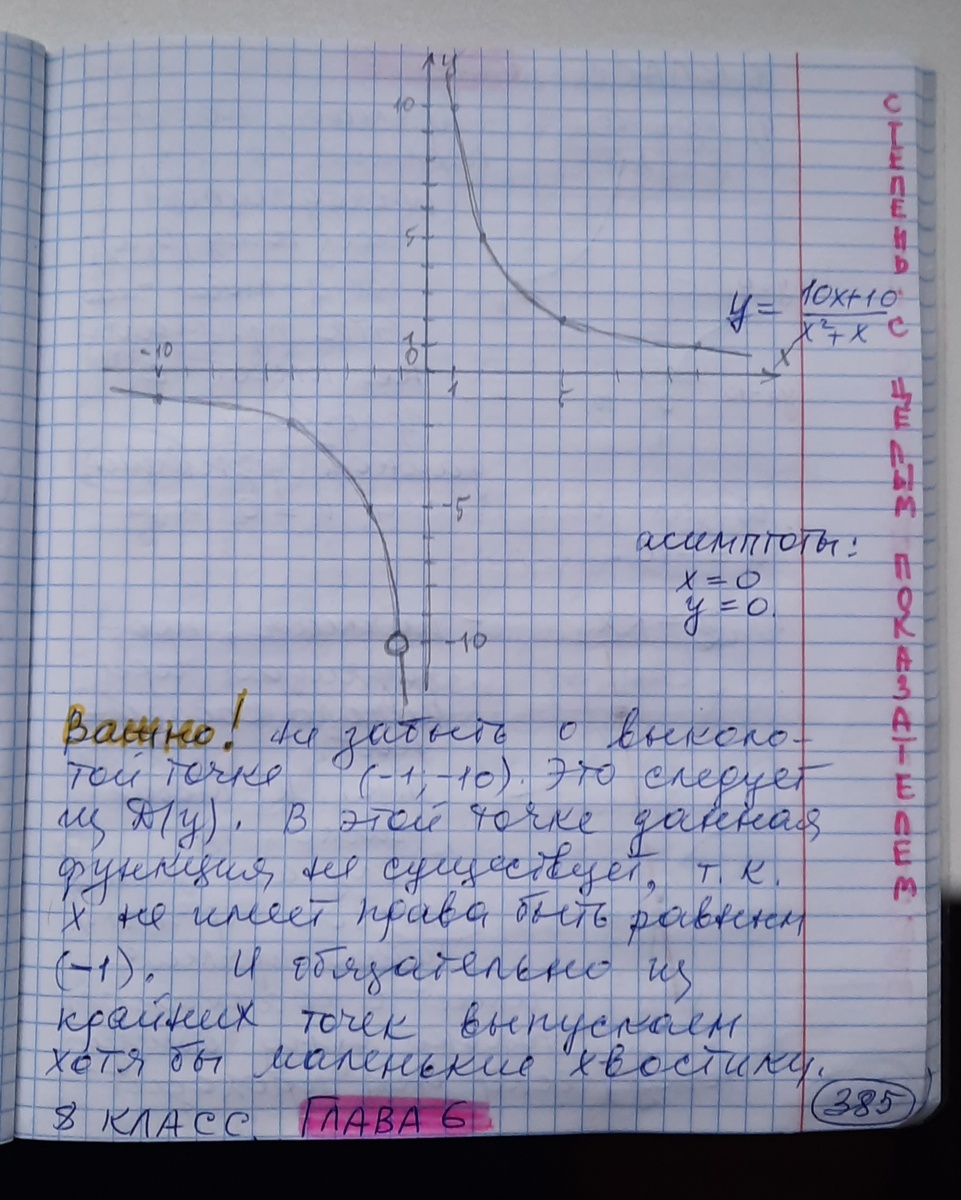 y
10
5
y = (10x+10)/(x²+x)
1
0
x
-10
1
5
-5
асимптоты:
x = 0
y = 0.
-10
Важно! не забыть о выколо-
той точке (-1; -10). Это следует
из D(y). В этой точке данная
функция не существует, т.к.
x не имеет права быть равным
(-1). И обязательно из
крайних точек выпускаем
хотя бы маленькие хвостики.
8 КЛАСС. ГЛАВА 6
385
СТЕПЕНЬ С ЦЕЛЫМ ПОКАЗАТЕЛЕМ